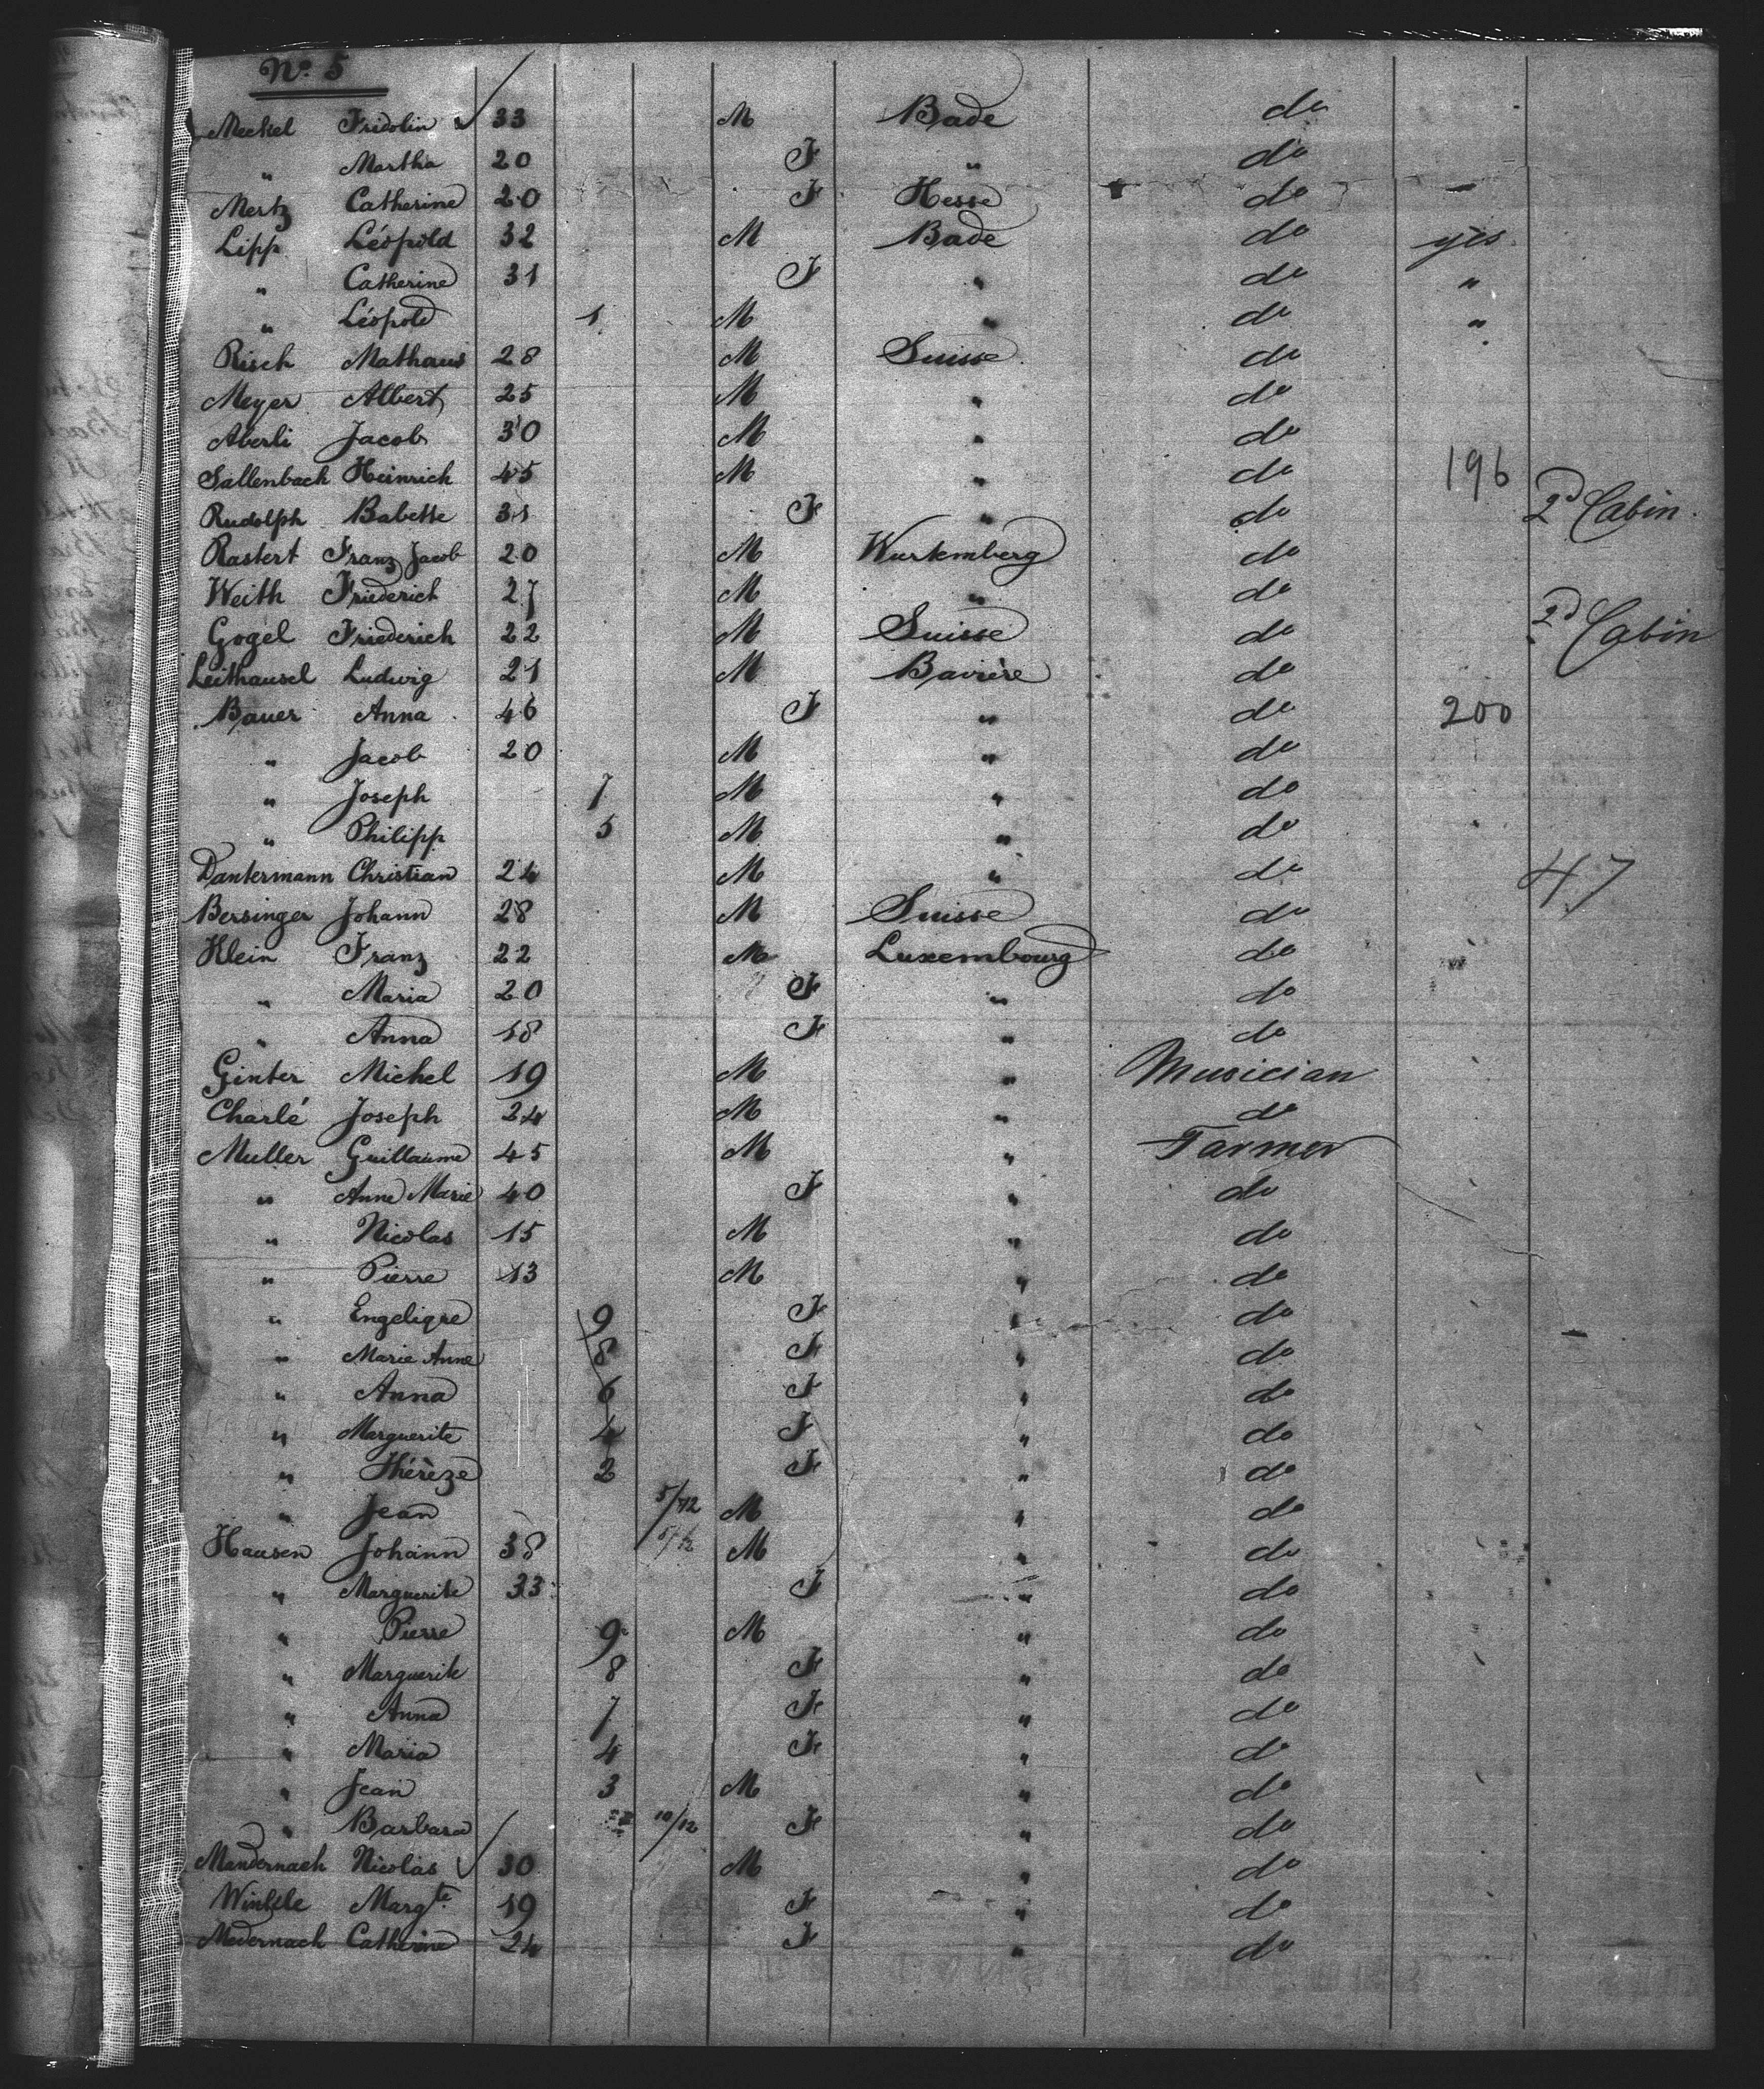 No. 5
Meckel Fridolin 33 M Bade do
" Martha 20 F " do
Mertz Catherine 20 F Hesse do
Lipp Léopold 32 M Bade do yes
" Catherine 31 F " do "
" Léopold 1 M " do "
Risch Mathaus 28 M Suisse do
Meyer Albert 25 M " do
Aberli Jacob 30 M " do
Sallenbach Heinrich 45 M " do 196
Rudolph Babette 31 F " do 2d Cabin
Rastert Franz Jacob 20 M Wurtemberg do
Weith Friederich 27 M " do
Gogel Friederich 22 M Suisse do 2d Cabin
Leithausel Ludwig 21 M Bavière do
Bauer Anna 46 F " do 200
" Jacob 20 M " do
" Joseph 7 M " do
" Philipp 5 M " do
Dantermann Christian 24 M " do 47
Bersinger Johann 28 M Suisse do
Klein Franz 22 M Luxembourg do
" Maria 20 F " do
" Anna 18 F " do
Ginter Michel 19 M " Musician
Charlé Joseph 24 M " do
Muller Guillaume 45 M " Farmer
" Anne Marie 40 F " do
" Nicolas 15 M " do
" Pierre 13 M " do
" Engeliqre 9 F " do
" Marie Anne 8 F " do
" Anna 6 F " do
" Marguerite 4 F " do
" Thérèze 2 F " do
" Jean 5/12 M " do
Hausen Johann 38 M " do
" Marguerite 33 F " do
" Pierre 9 M " do
" Marguerite 8 F " do
" Anna 7 F " do
" Maria 4 F " do
" Jean 3 M " do
" Barbara 10/12 F " do
Mandernach Nicolas 30 M " do
Margte 19 F " do
Medernach Catherine 24 F " do